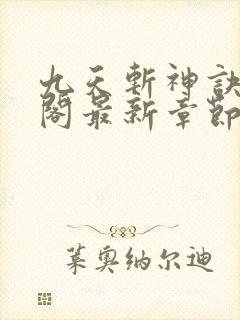 九天斬神訣
閣最新章節
莱奥纳尔迪